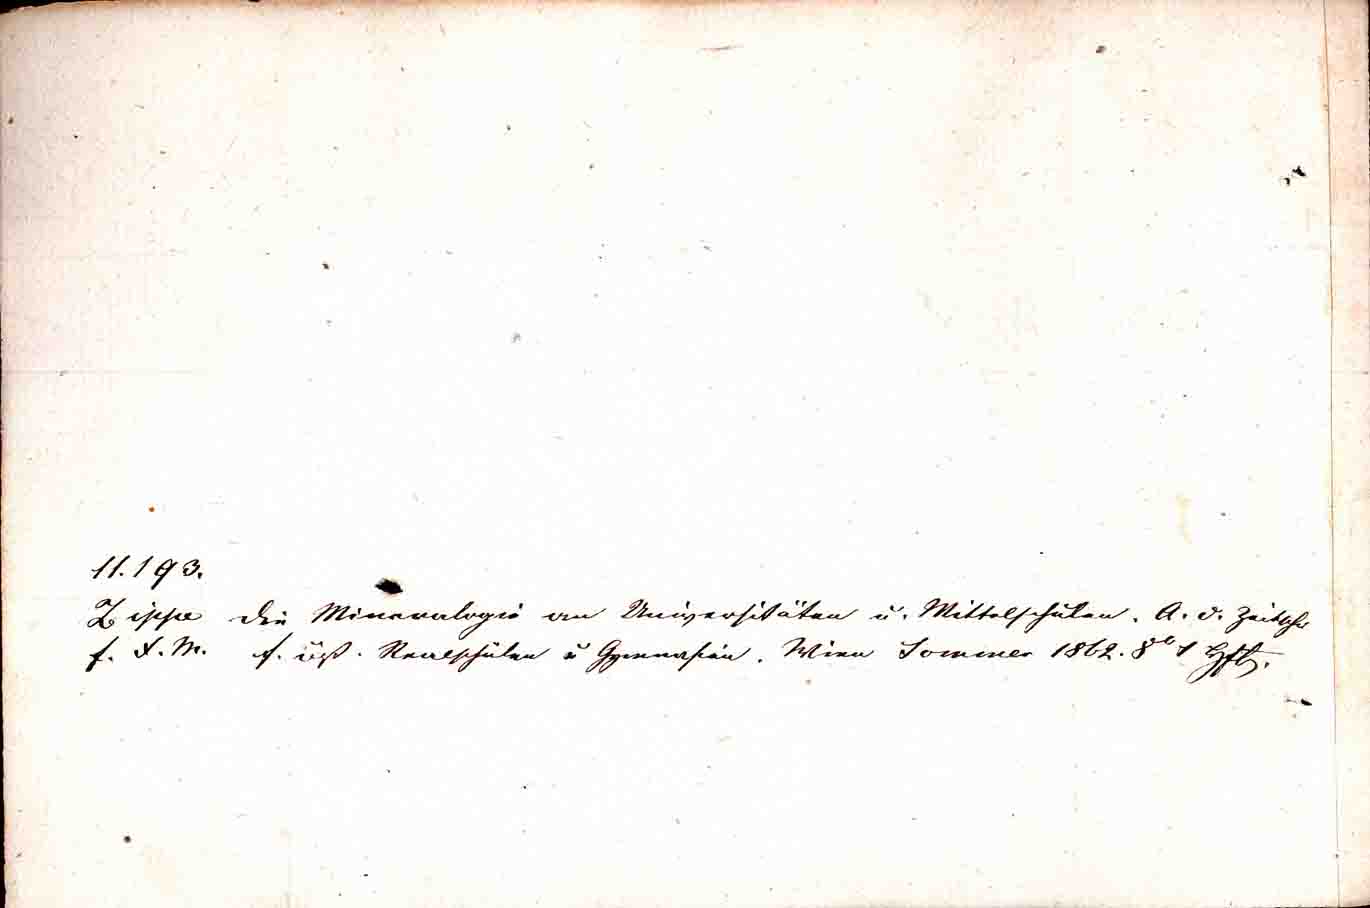 11.193.
Zippe die Mineralogie an Universitäten u. Mittelschulen. A. d. Zeitschr
f. X. M. f. öst. Realschulen u Gymnasien. Wien Sommer 1862. 8° 1 Hft.